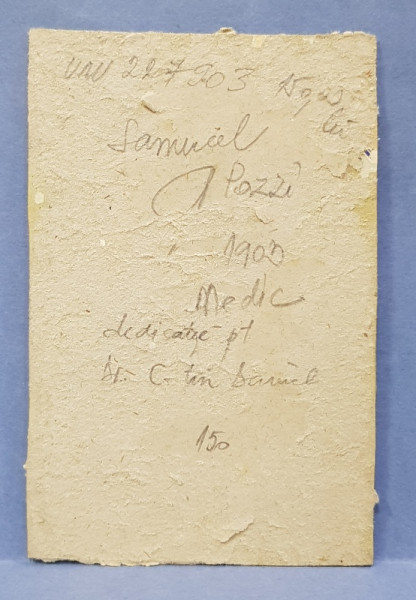 227203
lei
Samuel
Pozzi
1903
Medic
dedicație pt
Dr. C-tin Daniel
150